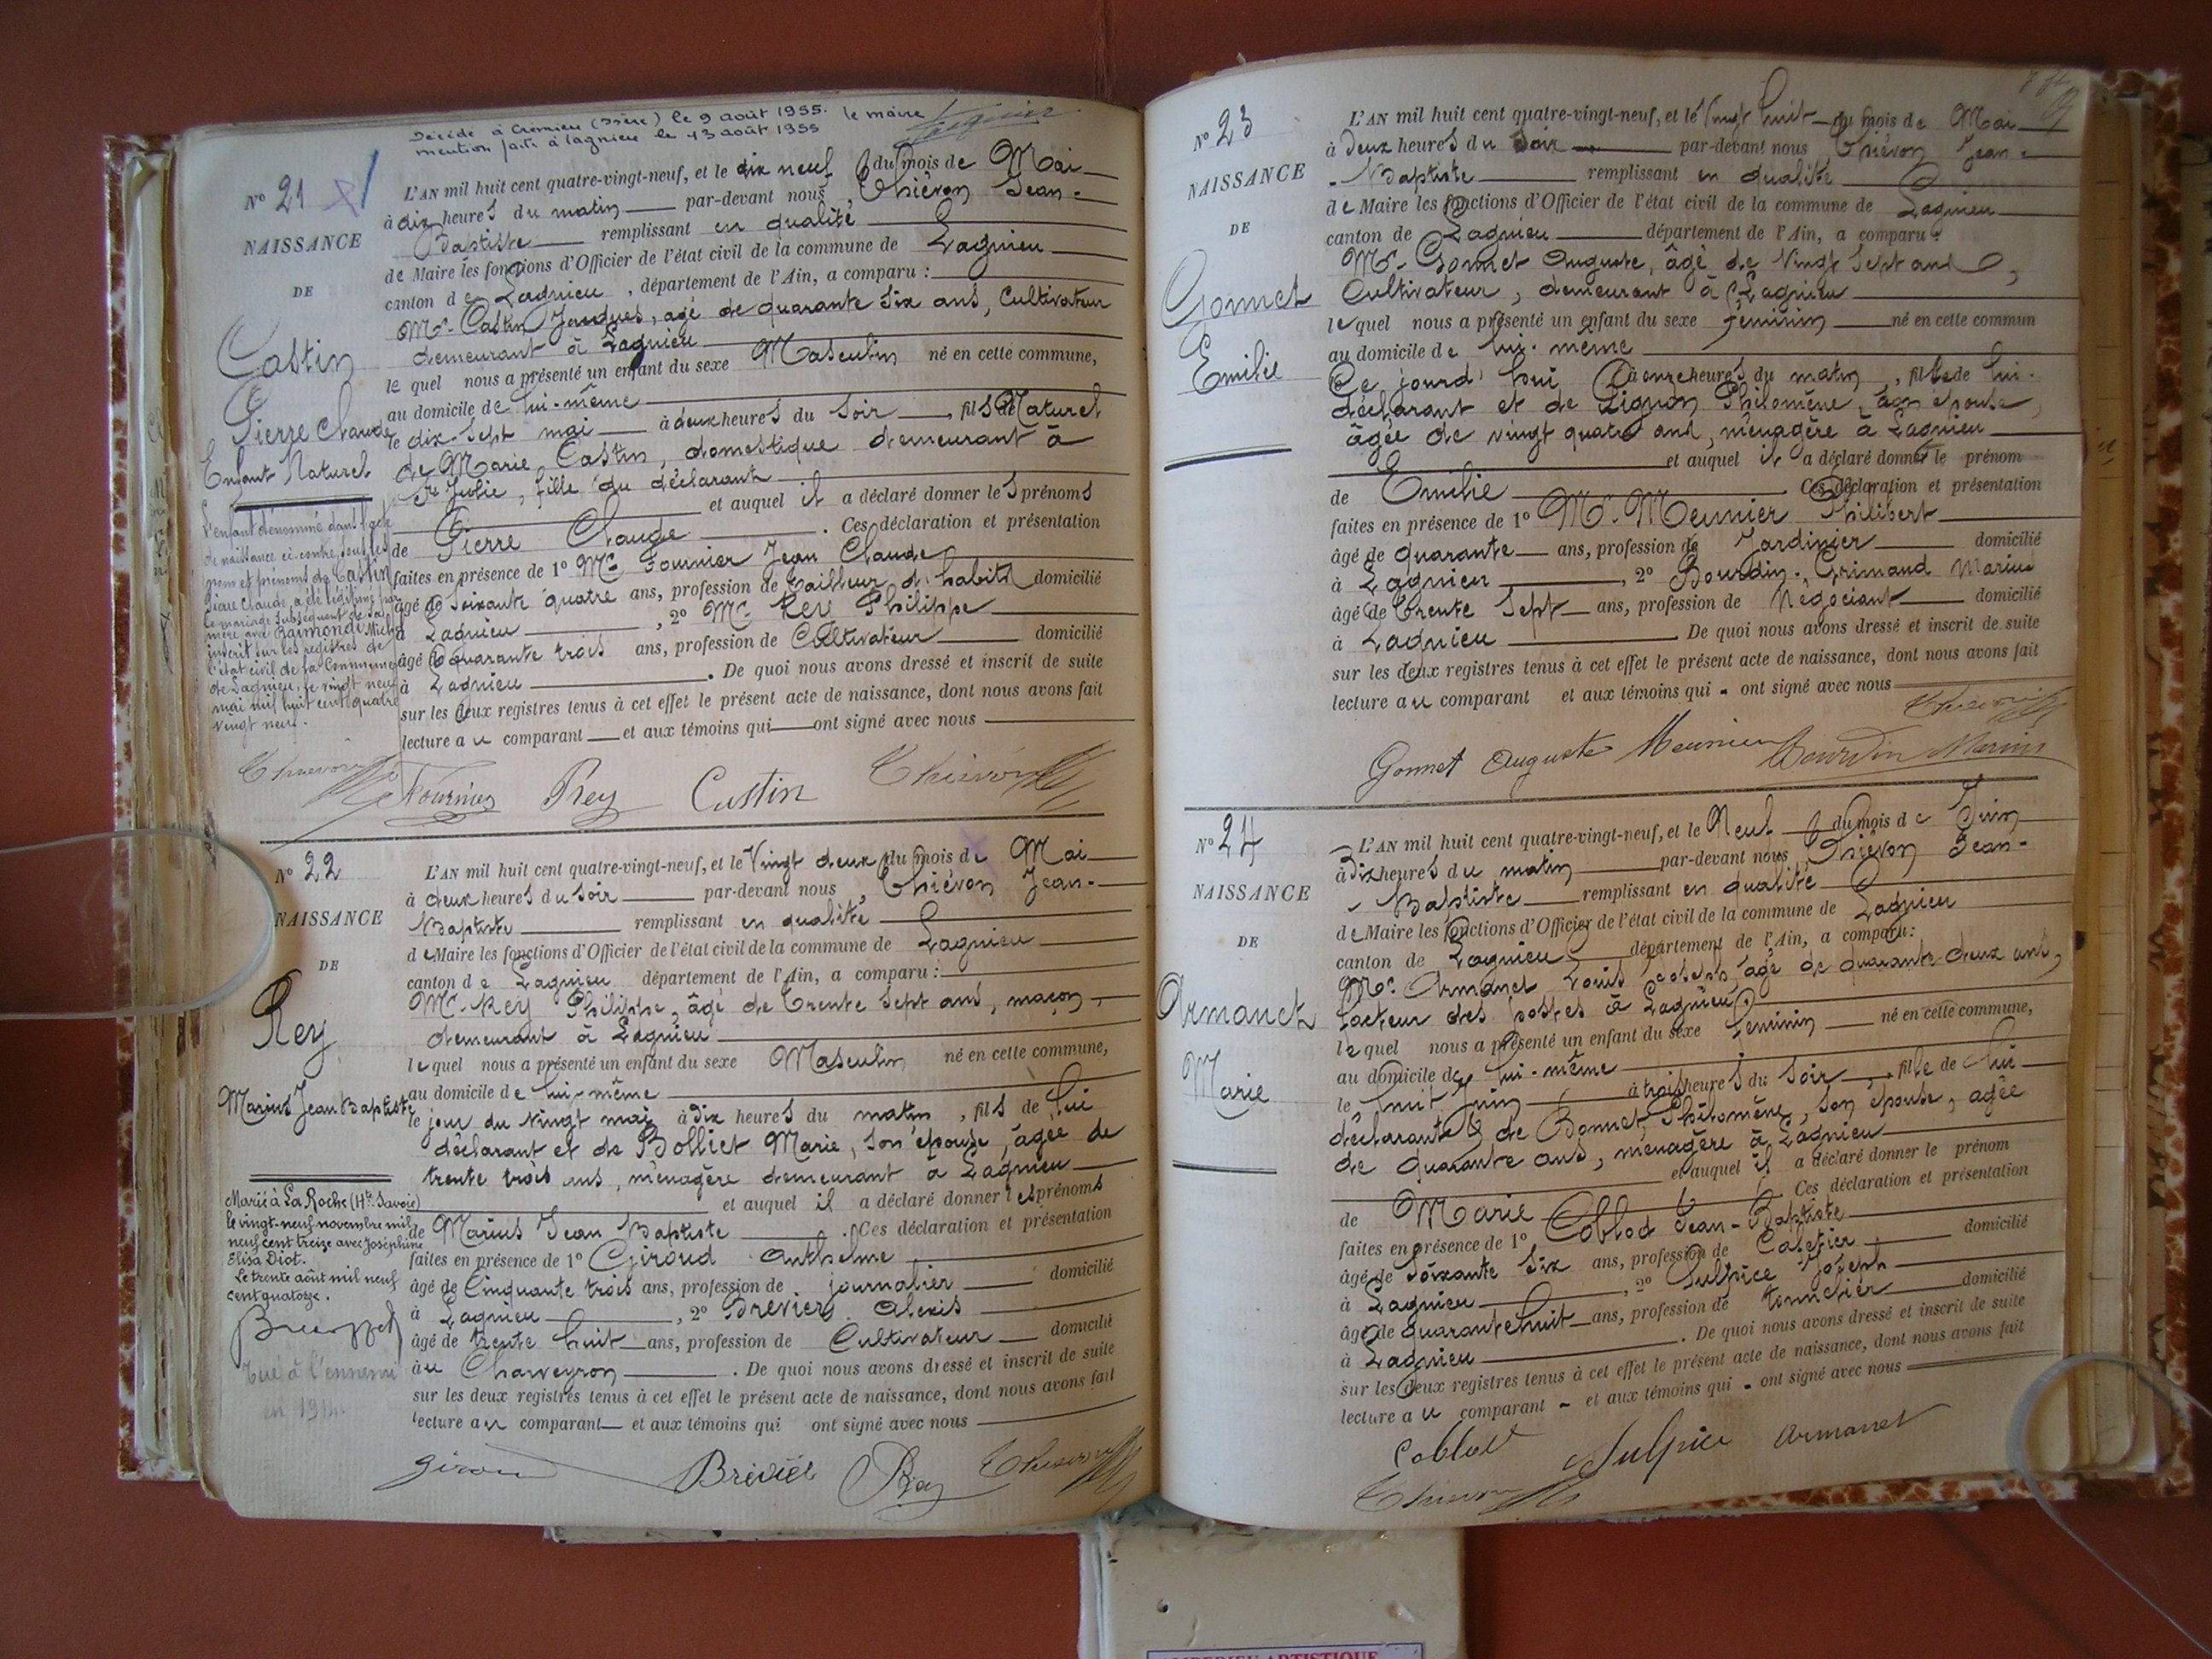 Décédé à Crémieu (Isère) le 9 août 1955. le maire
mention faite à Lagnieu le 13 août 1955
N° 21
NAISSANCE
DE
Castin
Pierre Claude
Enfant Naturel
L'enfant dénommé dans l'acte
de naissance ci-contre sous les
nom et prénoms de Castin
Pierre Claude, a été légitimé par
le mariage subséquent de sa
mère avec Raimondi Michel
inscrit sur les registres de
l'état civil de la Commune
de Lagnieu, le vingt neuf
mai mil huit cent quatre
vingt neuf.
L'AN mil huit cent quatre-vingt-neuf, et le dix neuf du mois de Mai
à dix heures du matin par-devant nous Thiévon Jean-
Baptiste remplissant en qualité
de Maire les fonctions d'Officier de l'état civil de la commune de Lagnieu
canton de Lagnieu, département de l'Ain, a comparu :
Mr. Castin Jacques, agé de quarante six ans, Cultivateur
demeurant à Lagnieu
lequel nous a présenté un enfant du sexe Masculin né en cette commune,
au domicile de lui-même
le dix-sept mai à deux heures du soir, fils Naturel
de Marie Castin, domestique demeurant à
Ste Julie, fille du déclarant
et auquel il a déclaré donner les prénoms
de Pierre Claude. Ces déclaration et présentation
faites en présence de 1° Mr Fournier Jean Claude
âgé de Soixante quatre ans, profession de tailleur d'habits domicilié
à Lagnieu, 2° Mr Rey Philippe
âgé de Quarante trois ans, profession de Cultivateur domicilié
à Lagnieu. De quoi nous avons dressé et inscrit de suite
sur les deux registres tenus à cet effet le présent acte de naissance, dont nous avons fait
lecture au comparant et aux témoins qui ont signé avec nous
Thiévon Fournier Rey Castin Thiévon
N° 22
NAISSANCE
DE
Rey
Marius Jean Baptiste
Marié à La Roche (Hte Savoie)
le vingt-neuf novembre mil
neuf cent treize avec Joséphine
Elisa Diot.
Le trente août mil neuf
cent quatorze.
Tué à l'ennemi
en 1914.
L'AN mil huit cent quatre-vingt-neuf, et le Vingt deux du mois de Mai
à deux heures du soir par-devant nous, Thiévon Jean-
Baptiste remplissant en qualité
de Maire les fonctions d'Officier de l'état civil de la commune de Lagnieu
canton de Lagnieu département de l'Ain, a comparu :
Mr. Rey Philippe, âgé de Trente sept ans, maçon,
demeurant à Lagnieu
lequel nous a présenté un enfant du sexe Masculin né en cette commune,
au domicile de lui-même
le jour du vingt mai à dix heures du matin, fils de lui
déclarant et de Bolliet Marie, son épouse, agée de
trente trois ans, ménagère demeurant à Lagnieu
et auquel il a déclaré donner les prénoms
de Marius Jean Baptiste. Ces déclaration et présentation
faites en présence de 1° Giroud Anthelme
âgé de Cinquante trois ans, profession de journalier domicilié
à Lagnieu, 2° Brevier Alexis
âgé de trente huit ans, profession de Cultivateur domicilié
au Charveyron. De quoi nous avons dressé et inscrit de suite
sur les deux registres tenus à cet effet le présent acte de naissance, dont nous avons fait
lecture au comparant et aux témoins qui ont signé avec nous
Giroud Brévier Rey Thiévon
N° 23
NAISSANCE
DE
Gonnet
Emilie
L'AN mil huit cent quatre-vingt-neuf, et le Vingt huit du mois de Mai
à Deux heures du Soir par-devant nous Thiévon Jean-
-Baptiste remplissant en qualité
de Maire les fonctions d'Officier de l'état civil de la commune de Lagnieu
canton de Lagnieu département de l'Ain, a comparu :
Mr. Gonnet Auguste, âgé de Vingt sept ans,
Cultivateur, demeurant à Lagnieu
lequel nous a présenté un enfant du sexe féminin né en cette commun
au domicile de lui-même
Ce jourd'hui à onze heures du matin, fille de lui-
déclarant et de Pignon Philomène, son épouse,
âgée de vingt quatre ans, ménagère à Lagnieu
et auquel il a déclaré donner le prénom
de Emilie Ces déclaration et présentation
faites en présence de 1° Mr. Meunier Philibert
âgé de quarante ans, profession de Jardinier domicilié
à Lagnieu, 2° Bourdin-Grimaud Marius
âgé de Trente Sept ans, profession de Négociant domicilié
à Lagnieu. De quoi nous avons dressé et inscrit de suite
sur les deux registres tenus à cet effet le présent acte de naissance, dont nous avons fait
lecture au comparant et aux témoins qui - ont signé avec nous
Thiévon
Gonnet Auguste Meunier Bourdin Marius
N° 24
NAISSANCE
DE
Armanet
Marie
L'AN mil huit cent quatre-vingt-neuf, et le Neuf du mois de Juin
à Dix heures du matin par-devant nous, Thiévon Jean-
-Baptiste remplissant en qualité
de Maire les fonctions d'Officier de l'état civil de la commune de Lagnieu
canton de Lagnieu département de l'Ain, a comparu :
Mr. Armanet Louis Joseph âgé de quarante deux ans,
facteur des postes à Lagnieu
lequel nous a présenté un enfant du sexe féminin né en cette commune,
au domicile de lui-même
le huit Juin à trois heures du soir, fille de lui
déclarant & de Bonnet Philomène, son épouse, agée
de quarante ans, ménagère à Lagnieu
et auquel il a déclaré donner le prénom
de Marie Ces déclaration et présentation
faites en présence de 1° Coblod Jean-Baptiste
âgé de Soixante Six ans, profession de Cafetier domicilié
à Lagnieu, 2° Sulpice Joseph
âgé de quarante huit ans, profession de tonnelier domicilié
à Lagnieu. De quoi nous avons dressé et inscrit de suite
sur les deux registres tenus à cet effet le présent acte de naissance, dont nous avons fait
lecture au comparant - et aux témoins qui - ont signé avec nous
Coblod Sulpice Armanet
Thiévon